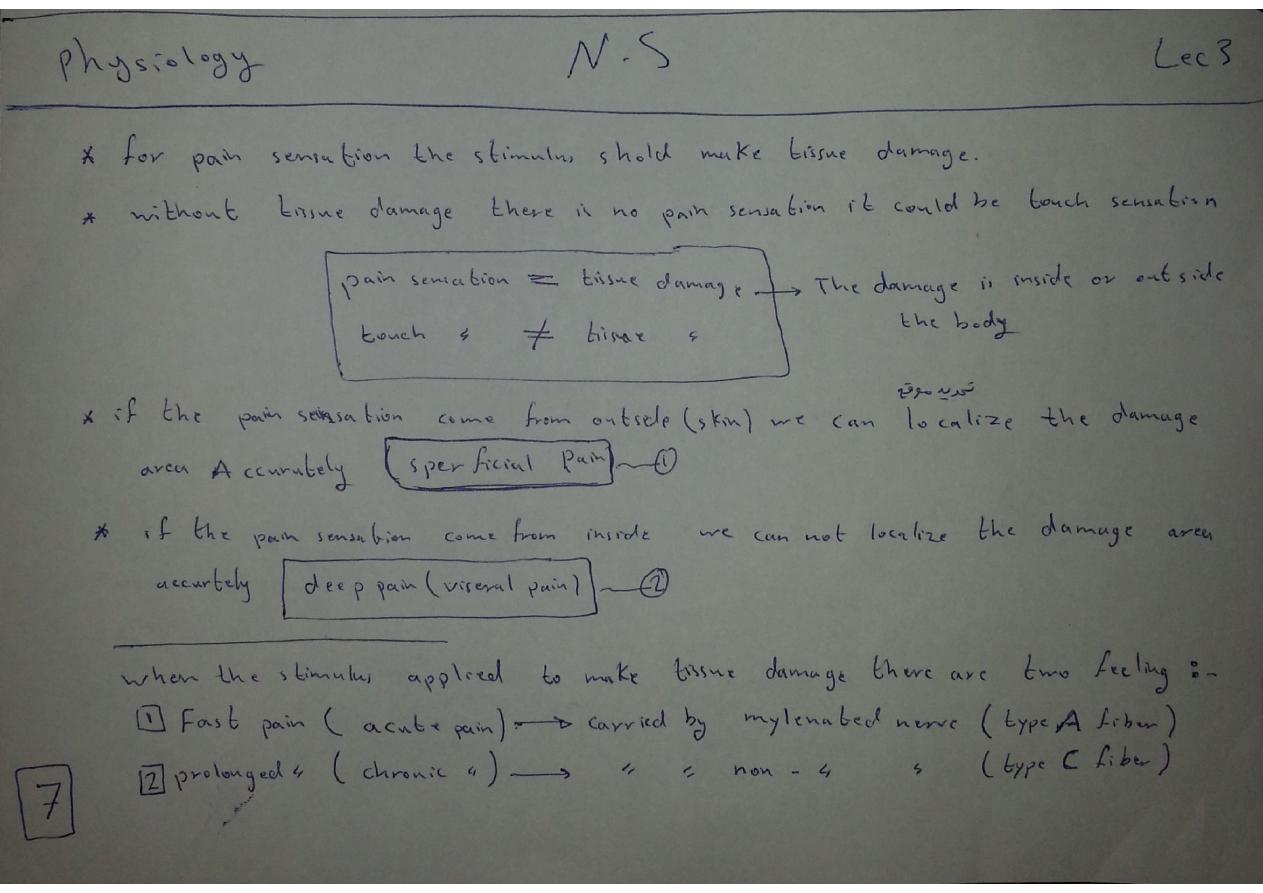 physiology N.S Lec 3
* for pain sensation the stimulus shold make tissue damage.
* without tissue damage there is no pain sensation it could be touch sensation
pain sensation = tissue damage → The damage is inside or outside
the body
touch " ≠ tissue "
تحديد موقع
* if the pain sensation come from outside (skin) we can localize the damage
area Accurately (sperficial Pain) ①
* if the pain sensation come from inside we can not localize the damage area
accurtely deep pain (viseral pain) ②
when the stimulus applied to make tissue damage there are two feeling :-
1 Fast pain (acute pain) → carried by mylenated nerve (type A fiber)
2 prolonged " (chronic ") → " " non - " " (type C fiber)
7